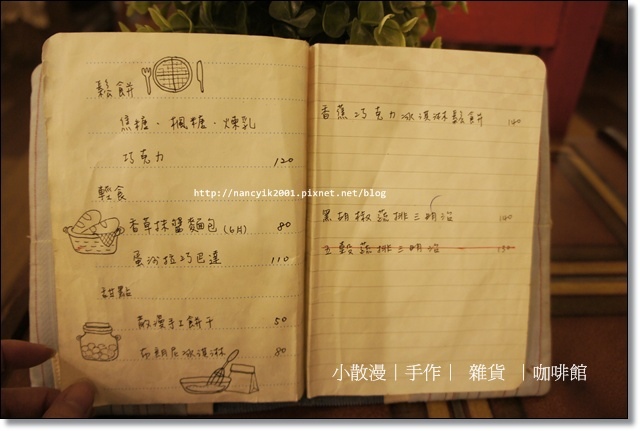 鬆餅
焦糖．楓糖．煉乳
巧克力 120
輕食
香草抹醬麵包(6片) 80
蛋沙拉巧巴達 110
甜點
散漫手工餅干 50
布朗尼冰淇淋 80
香蕉巧克力冰淇淋鬆餅 140
黑胡椒蔬排三明治 140
五穀蔬排三明治 130
http://nancyik2001.pixnet.net/blog
小散漫｜手作｜ 雜貨 ｜咖啡館